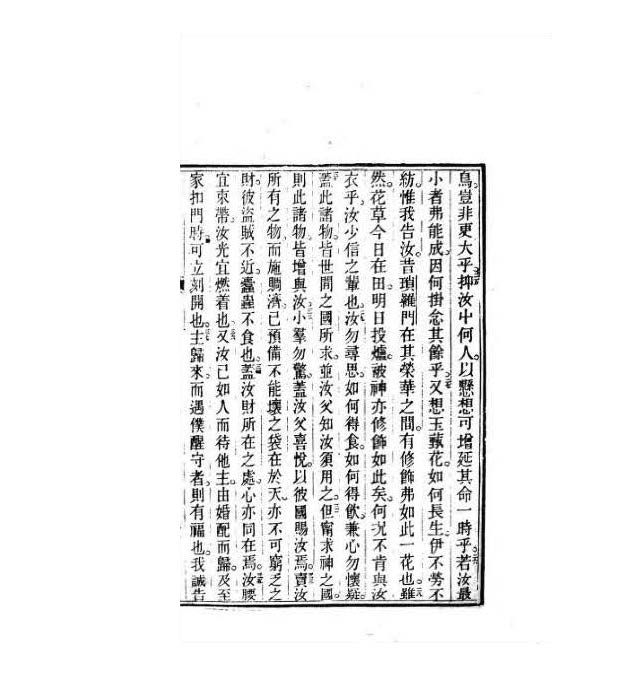 鳥豈非更大乎抑汝中何人以懸想可增延其命一時乎若汝最
小者弗能成因何掛念其餘乎又想玉蘂花如何長生伊不勞不
紡惟我告汝昔瑣羅門在其榮華之間有修飾弗如此一花也雖
然花草今日在田明日投爐被神亦修飾如此矣何况不肯與汝
衣乎汝少信之輩也汝勿尋思如何得食如何得飲兼心勿懷疑
蓋此諸物皆世間之國所求並汝父知汝須用之但甯求神之國
則此諸物皆增與汝小羣勿驚蓋汝父喜悅以彼國賜汝焉賣汝
所有之物而施賙濟已預備不能壞之袋在於天亦不可窮乏之
財彼盜賊不近蠹蟲不食也蓋汝財所在之處心亦同在焉汝腰
宜束帶汝光宜燃着也又汝已如人而待他主由婚配而歸及至
家扣門時可立刻開也主歸來而遇僕醒守者則有福也我誠告